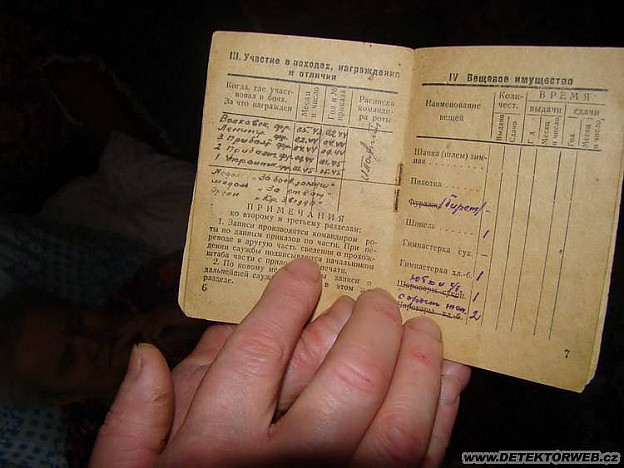 III. Участие в походах, награждения
и отличия
Когда, где участ-
вовал в боях.
За что награжден
Месяц
и число
Год и №
приказа
Расписка
команди-
ра роты
Волховск. фр. 05.43 02.44
Ленингр. фр. 02.44 04.44
3 Прибалт. фр. 04.44
2 Прибалт. фр.
1 Украинск. фр. 05.45
Медаль „За боев. заслуги“
медаль „За
Орден „Кр. Звезда“
ПРИМЕЧАНИЯ
ко второму и третьему разделам:
1. Записи производятся командиром ро-
ты по данным приказов по части. При пе-
реводе в другую часть сведения о прохож-
дении службы подписываются начальником
штаба части с печати.
2. По новому записи о
дальнейшей служ в этом
разделе.
6
IV Вещевое имущество
Наименование
вещей
Коли-
чест.
Выдано
Сдано
ВРЕМЯ
выдачи
сдачи
Год
Месяц
и число
Год
Месяц
и число
Шапка (шлем) зим-
няя
Пилотка
(берет) -
Шинель 1
Гимнастерка сук. -
Гимнастерка х.-б. 1
юбки х/б
Шаровары сукон. 1
2
Шаровары х.-б.
7
WWW.DETEKTORWEB.CZ